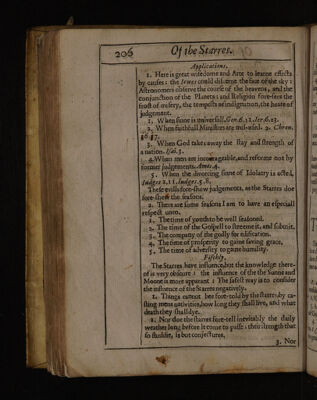 206
Of the Starres.
Applications.
1. Here is great wisedome and Arte to learne effects
by causes: the Iewes could discerne the face of the sky:
Astronomers observe the course of the heavens, and the
conjunction of the Planets: and Religion fore-sees the
frost of misery, the tempests of indignation, the heate of
judgement.
1. When sinne is universall, Gen.6.12. Ier.6.13.
2. When faithfull Ministers are misused. 2. Chron.
36.17.
3. When God takes away the stay and strength of
a nation. Isa.3.
4. When men are incorrigable, and reforme not by
former judgements. Amos 4.
5. When the divorcing sinne of Idolatry is acted,
Iudges 2.11. Iudges 5.8.
These evills fore-shew judgements, as the Starres doe
fore-shew the seasons.
2. There are some seasons I am to have an especiall
respect unto.
1. The time of youth to be well seasoned.
2. The time of the Gospell to esteeme it, and submit.
3. The company of the godly for edification.
4. The time of prosperity to gaine saving grace.
5. The time of adversity to gaine humility.
Fifthly,
The Starres have influence, but the knowledge there-
of is very obscure: the influence of the Sunne and
Moone is more apparant: The safest way is to consider
the influence of the Starres negatively.
1. Things cannot bee fore-told by the starres, by ca-
sting mens nativities, how long they shall live, and what
death they shall dye.
2. Nor doe the starres fore-tell inevitably the daily
weather long before it come to passe: their strength that
so studdie, is but conjectures.
3. Nor